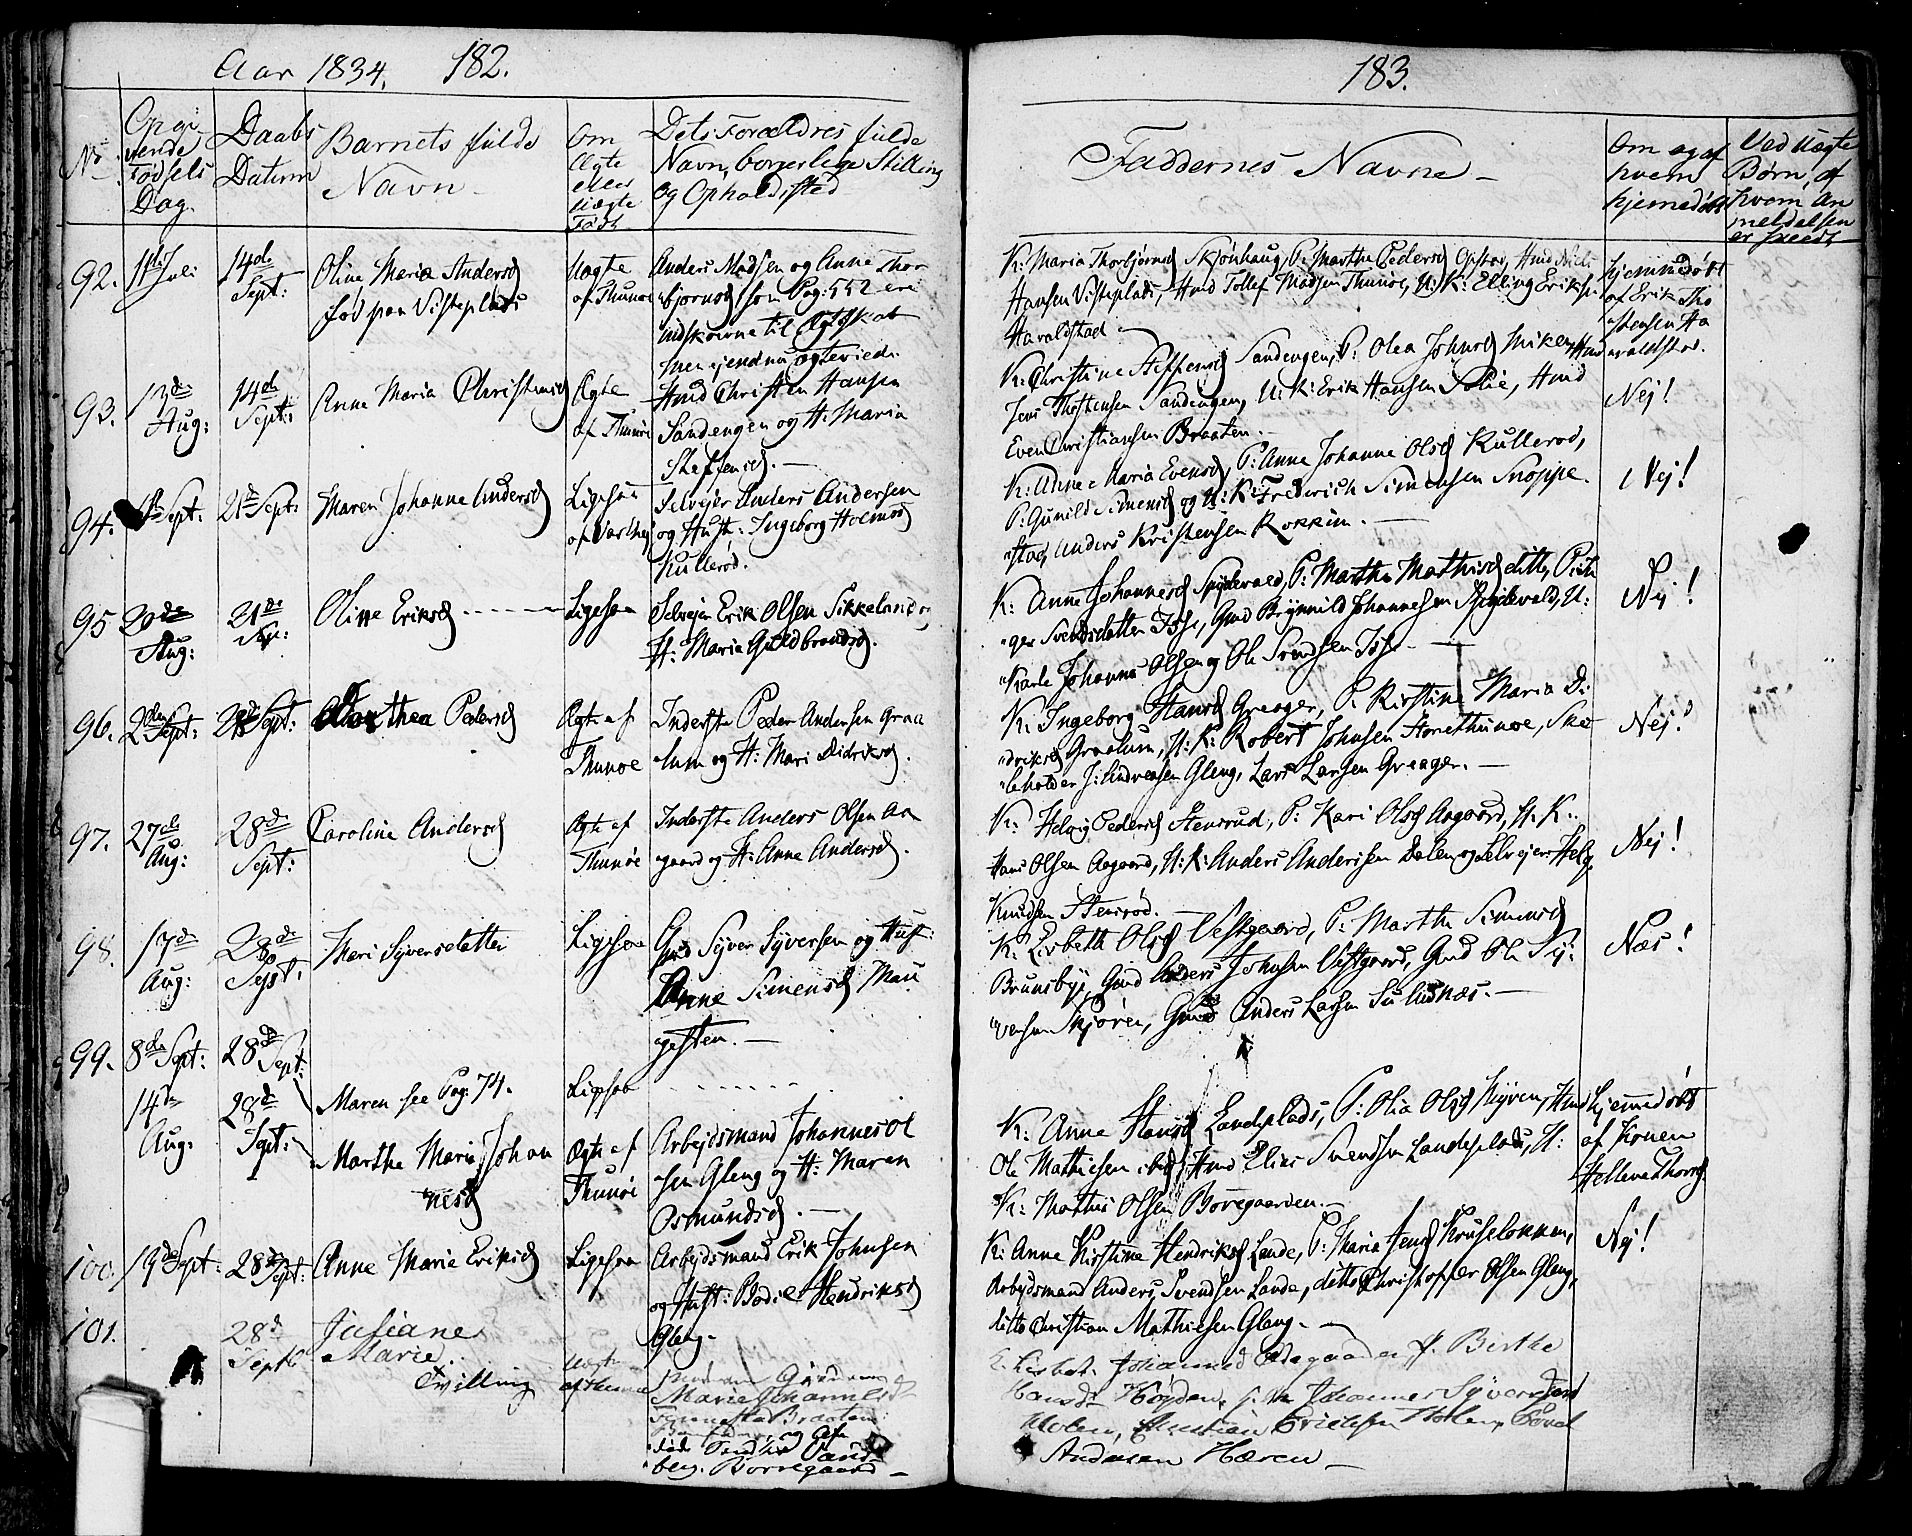 Aar 1834. 182.
No
Opgi
vende
Fødsels
Dag.
Daabs
Datum
Barnets fulde
Navn
Om
Ægte
eller
Uægte
Født
Dets Forældres fulde
Navn, borgerlige Stilling
og Opholdsted
92. 11te Juli
14de
Sept:
Oline Maria Andersd
fød paa Visteplads
Uægte
af Thunøe
Anders Madsen og Anne Thor
bjørnsd som Pag: 552 ere
indskrevne til Ægteskab
men ejendnu ægteviede.
93. 13de
Aug:
14de
Sept:
Anne Maria Christensd
Ægte
af Thunøe
Hmd Christen Hansen
Sandengen og H: Maria
Steffensd. —
94. Sept:
21de Sept:
Maren Johanne Andersd
Ligesaa
af Varthej
Selvejer Anders Andersen
og Hust: Ingeborg Holmsd
Kullerød.
95 20de
Aug:
21de
Sep:
Oline Eriksd
Ligesaa
Selvejer Erik Olsen Sikkeland og
H: Maria Guldbrandsd.
96. 2den Sept:
21de Sept:
Dorthea Pedersd
Ægte af
Thunøe
Inderste Peder Andersen Graa
lum og H: Mari Didriksd.
97. 27de
Aug:
28de
Sept:
Caroline Andersd
Ægte af
Thunøe
Inderste Anders Olsen Aa
gaard og H: Anne Andersd.
98. 17de
Aug:
28de
Sept:
Mari Syversdatter
Ligesaa
Gmd Syver Syversen og Hust:
Anne Simensd Mau
gesten. —
99. 8de Sept:
28de Sept:
Maren see Pag: 74.
Ligesaa
14de
Aug:
28de
Sept:
Marthe Maria Johan
nesd
Ægte af
Thunøe
Arbejdsmand Johannes Ol
sen Gleng og H: Maren
Osmundsd. —
100. 19de Sept:
28de Sept:
Anne Marie Eriksd
Ligesaa
Arbejdsmand Erik Johnsen
og Hust: Bodil Hendriksd
Gleng.
101.
28d
Septb
Juliane
Marie.
Tvilling
Uægte
af Thunøe
Marie Johannesd
Braaten
og
Sand
berg. Borregaard —
183.
Faddernes Navne —
Om og af
hvem
hjemedøbt
Ved Uægte
Børn, af
hvem An
meldelsen
er skeedt
K: Maria Thorbjørnsd Skjønhaug, P: Marthe Pedersd Opstad, Hmd Niels
Hansen Visteplads, Hmd Tollef Madsen Thunøe, U: K: Elling Eriksen
Haraldstad —
hjemmedøbt
af Erik Tho
stensen Ha
raldstad.
K: Christine Steffensd Sandengen, P: Olea Johnsd Miken, Hmd
Jens Thostensen Sandengen, U: K: Erik Hansen Solie, Hmd
Even Christiansen Braaten. —
Nej!
K: Anne Maria Evensd, P: Anne Johanne Olsd Kullerød,
P: Gunild Simensd og U: K: Frederich Simensen Snoppe
stad, Anders Kristensen Rokkim. —
Nej!
K: Anne Johannesd Spydevold, P: Marthe Mathisd ditto, Pi
ger Svendsdatter Isse, Gmd Brynnild Johannesen Spydevold, U:
Karle Johannes Olsen og Ole Svendsen Isse —
Nej!
K: Ingeborg Hansd Graager, P: Kirstine Maria Di
driksd Graalum, U: K: Robert Johnsen Tomethunøe, Ske
beholder J: Andreasen Gleng, Lars Larsen Graager. —
Nej!
K: Helvig Pedersd Stensrud, P: Kari Olsd Aagaard, U: K:
Hans Olsen Aagaard, U: K: Anders Andersen Dalen og Selvejer Helge
Knudsen Stensrød.
Nej!
K: Lisbeth Olsd Vestgaard, P: Marthe Simensd
Brunsbye, Gmd Anders Johnsen Vestgaard, Gmd Ole Sy
versen Skjøren, Gmd Anders Larsen Sulusnæs. —
Næs!
K: Anne Hansd Landeplads, P: Olia Olsd Kyven, Hmd
Ole Mathiesen ibid, Hmd Elias Svendsen Landeplads, U:
K: Mathis Olsen Borregaarden. —
hjemmedøbt
af Konen
Hellene Thorsd
K: Anne Kirstine Hendriksd Lande, P: Maria Jensd Kruselokken,
Arbejdsmand Anders Svendsen Lande, ditto Christopher Olsen Gleng,
ditto Christian Mathiesen Gleng. —
Nej!
Lisbet Johannesd Birthe
Hansd Høyden, Johannes Syversen
Holen, Christian Ericksen Holen, Povel
Andersen Hæren —